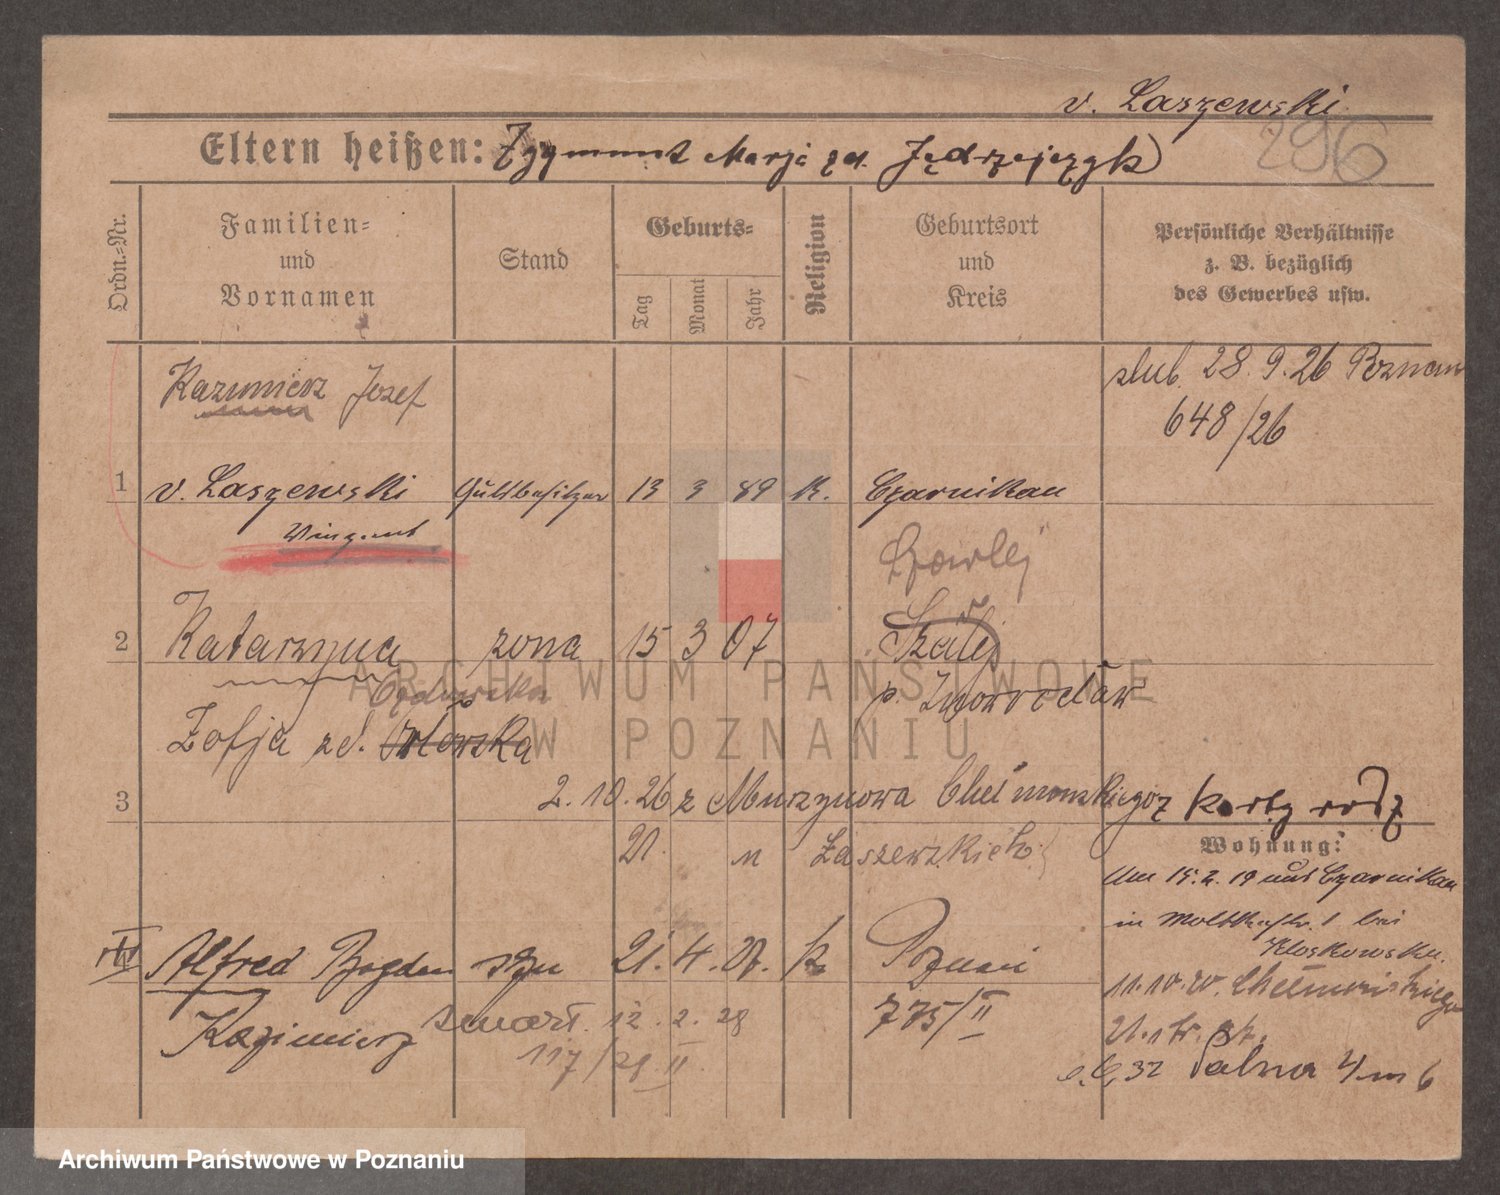 v. Laszewski
296
Eltern heißen: Zygmunt Marja zd. Jędrzejczyk
Ordn.-Nr.
Familien-
und
Vornamen
Stand
Geburts-
Tag
Monat
Jahr
Religion
Geburtsort
und
Kreis
Persönliche Verhältnisse
z. B. bezüglich
des Gewerbes usw.
Kazimierz Jozef
ślub. 28.9.26 Poznań
648/26
1 v. Laszewski Gutsbesitzer 13 3 89 K. Czarnikau
Winzent
2 Katarzyna żona 15 3 07
p. Inowrocław
Zofja zd.
3 2.10.26 z Murzynowa Chełmońskiego z karty rodz
21. u Łaszewskich
Wohnung:
Um 15.2.19 aus Czarnikau
in Moltkestr. 1 bei
III Alfred Bogdan syn 21. 4. 27. k Poznań
Kazimierz zmarł. 12. 2. 28 775/II
117/28 II
11.10. Chełmońskiego
21.
6,32 Palna 4 m 6
ARCHIWUM PAŃSTWOWE
W POZNANIU
Archiwum Państwowe w Poznaniu